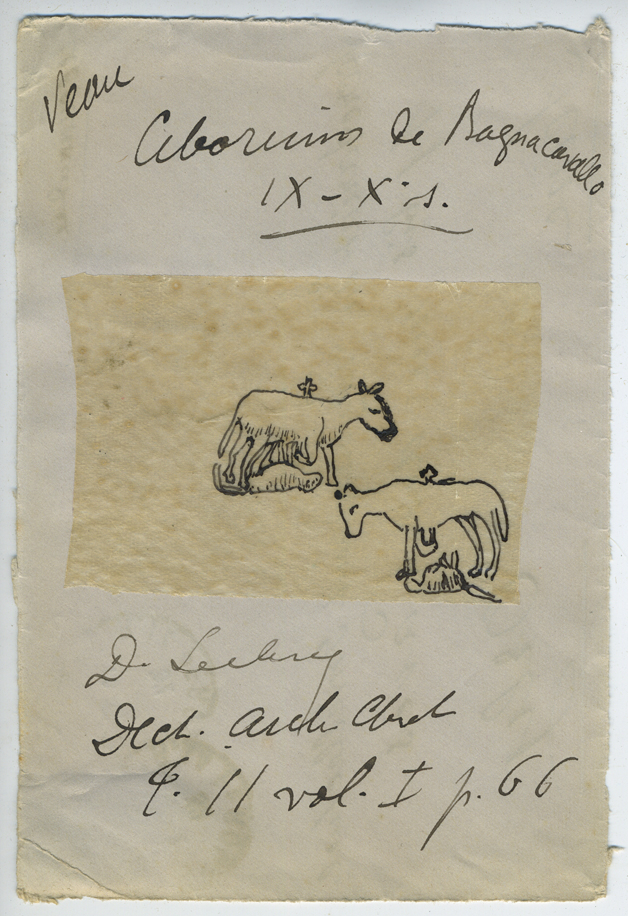 Veau
Ciborium de Bagnacavallo
IX - X s.
D. Leclercq
Dict. Arch Chret
t. II vol. I p. 66